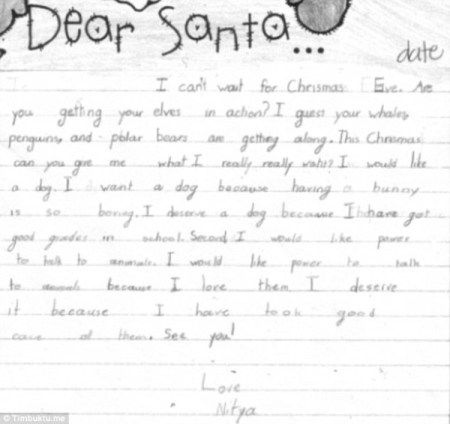 Dear Santa...
date
I can't wait for Chrismas Eve. Are
you getting your elves in action? I guess your whales,
penguins, and polar bears are getting along. This Chrismas
can you give me what I really really want? I would like
a dog. I want a dog because having a bunny
is so boring. I deserve a dog because I have got
good grades in school. Second I would like power
to talk to animals. I would like power to talk
to animals because I love them I deserve
it because I have took good
care of them. See you!
Love
Nitya
© Timbuktu.me